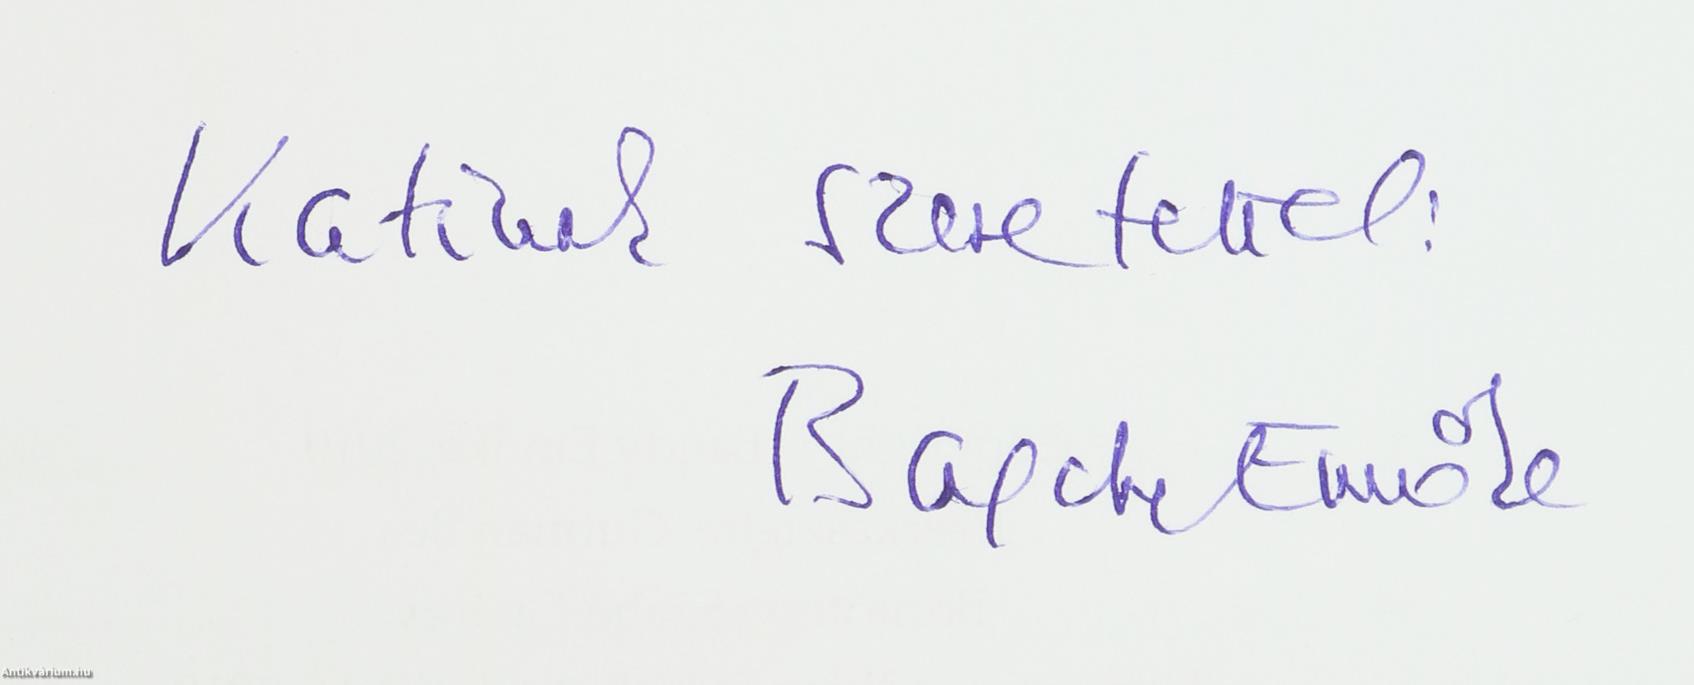 Katinak szeretettel:
Bagdy Emőke
Antikvárium.hu